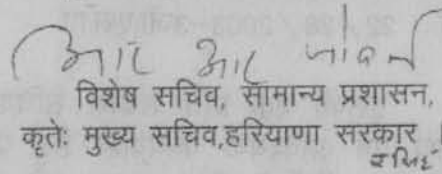 आर आर जोवल
विशेष सचिव, सामान्य प्रशासन,
कृतेः मुख्य सचिव,हरियाणा सरकार